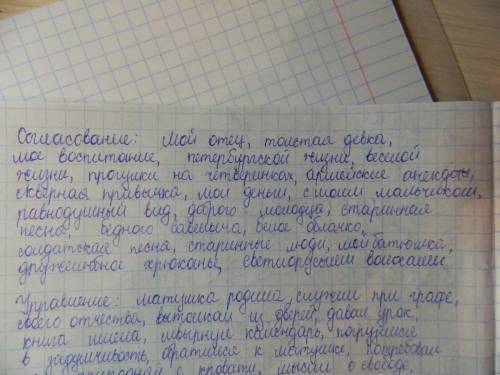 Согласование: мой отец, толстая девка,
мое воспитание, петербургской жизни, веселой
жизни, прогулки на четвереньках, армейские анекдоты,
скверная привычка, мои деньги, с моим мальчиком,
равнодушный вид, доброго молодца, старинная
песня, бедного Савельича, белое облачко,
солдатская песня, старинные люди, мой батюшка,
дружественное хрюканье, светлорусыми волосами.
Управление: матушка родила, служил при графе,
своего отчества, вытолкал из дверей, давал урок,
книга имела, швырнул календарь, погрузился
в задумчивость, обратился к матушке, потребовал
с кровати, мысли о свободе,